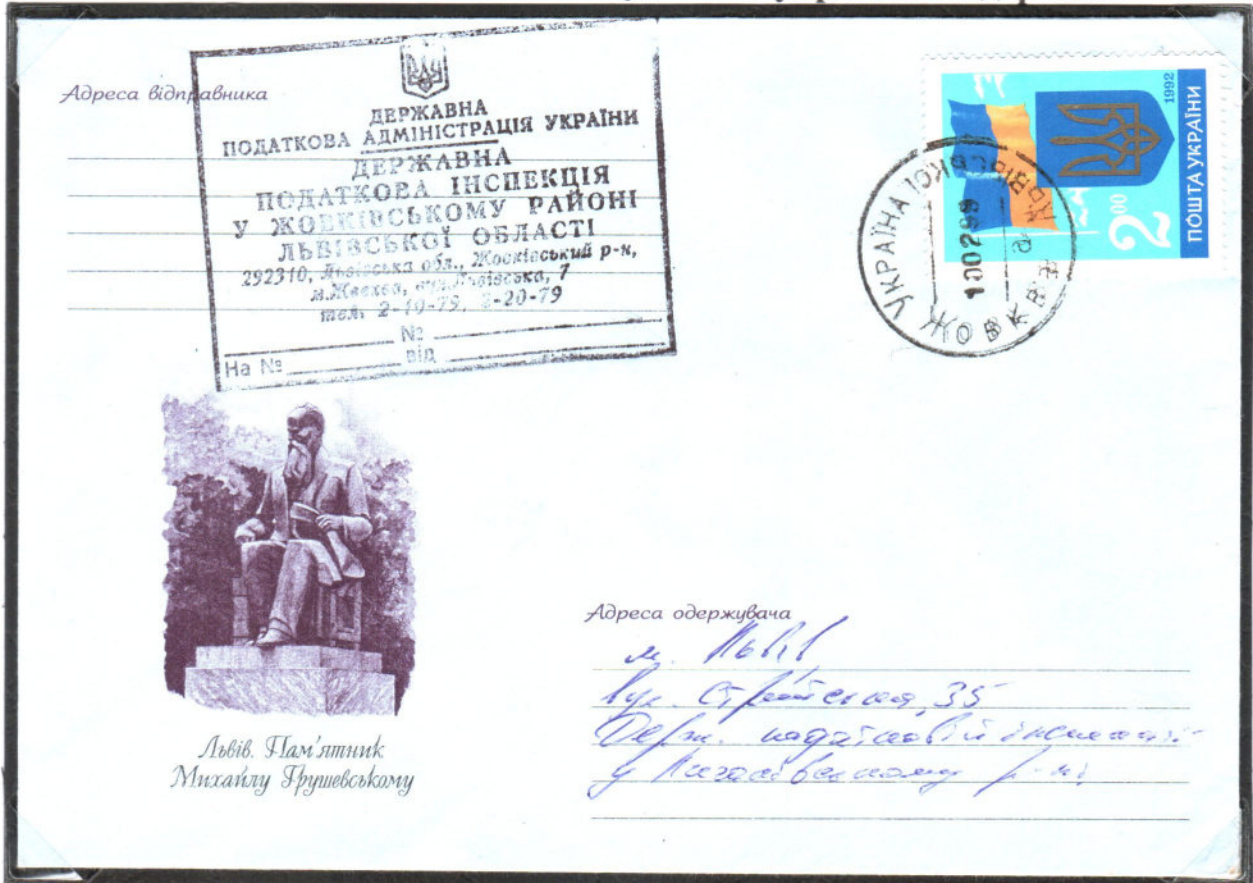 Адреса відправника
ДЕРЖАВНА
ПОДАТКОВА АДМІНІСТРАЦІЯ УКРАЇНИ
ДЕРЖАВНА
ПОДАТКОВА ІНСПЕКЦІЯ
У ЖОВКІВСЬКОМУ РАЙОНІ
ЛЬВІВСЬКОЇ ОБЛАСТІ
292310, Львівська обл., Жовківський р-н,
м.Жовква, вул.Львівська, 7
тел. 2-10-79, 2-20-79
№
На № від
1992
ПОШТА УКРАЇНИ
2 00
УКРАЇНА
ЖОВКВА
ЛЬВІВСЬКОЇ
100299
Львів. Пам'ятник
Михайлу Грушевському
Адреса одержувача
м. Львів
вул. Стрийська, 35
Держ. податковій інспекції
у р-ні